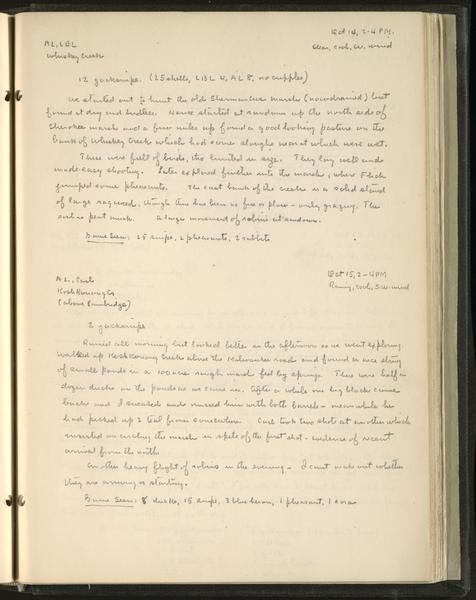 Oct 14, 2-4 P.M.
AL, LBL
Clear, cool, W. wind
Whiskey Creek
12 jacksnipe. (25 shells, LBL 4, AL 8, no cripples)
We started out to hunt the old Sherman Ave marsh (now drained) but
found it dry and birdless. Hence started at random up the north side of
Cherokee marsh and a few miles up found a good looking pasture on the
bank of Whiskey Creek which had some sloughs near it which were wet.
These were full of birds, tho limited in size. They lay well and
made easy shooting. Later explored further into the marsh, where Flick
jumped some pheasants. The east bank of the creek is a solid stand
of large ragweed, though there has been no fire or plow - only grazing. The
soil is peat muck. A large movement of robins at sundown.
Game Seen: 25 snipe, 2 pheasants, 2 rabbits
Oct 15, 2-4 PM
AL, Carl
Rainy, cool, SW wind
Koshkonong Cr
(above Cambridge)
2 jacksnipe
Rained all morning but looked better in the afternoon so we went exploring.
Walked up Koshkonong Creek above the Milwaukee road and found a nice string
of small ponds in a 100 acre rough marsh fed by springs. There were half a
dozen ducks on the ponds as we came in. After a while one big black came
back and I sneaked and missed him with both barrels - meanwhile he
had picked up 2 teal from somewhere. Carl took two shots at another which
insisted on circling the marsh in spite of the first shot - evidence of recent
arrival from the north.
Another heavy flight of robins in the evening - I cant make out whether
they are arriving or starting.
Game Seen: 8 ducks, 15 snipe, 3 blue heron, 1 pheasant, 1 sora